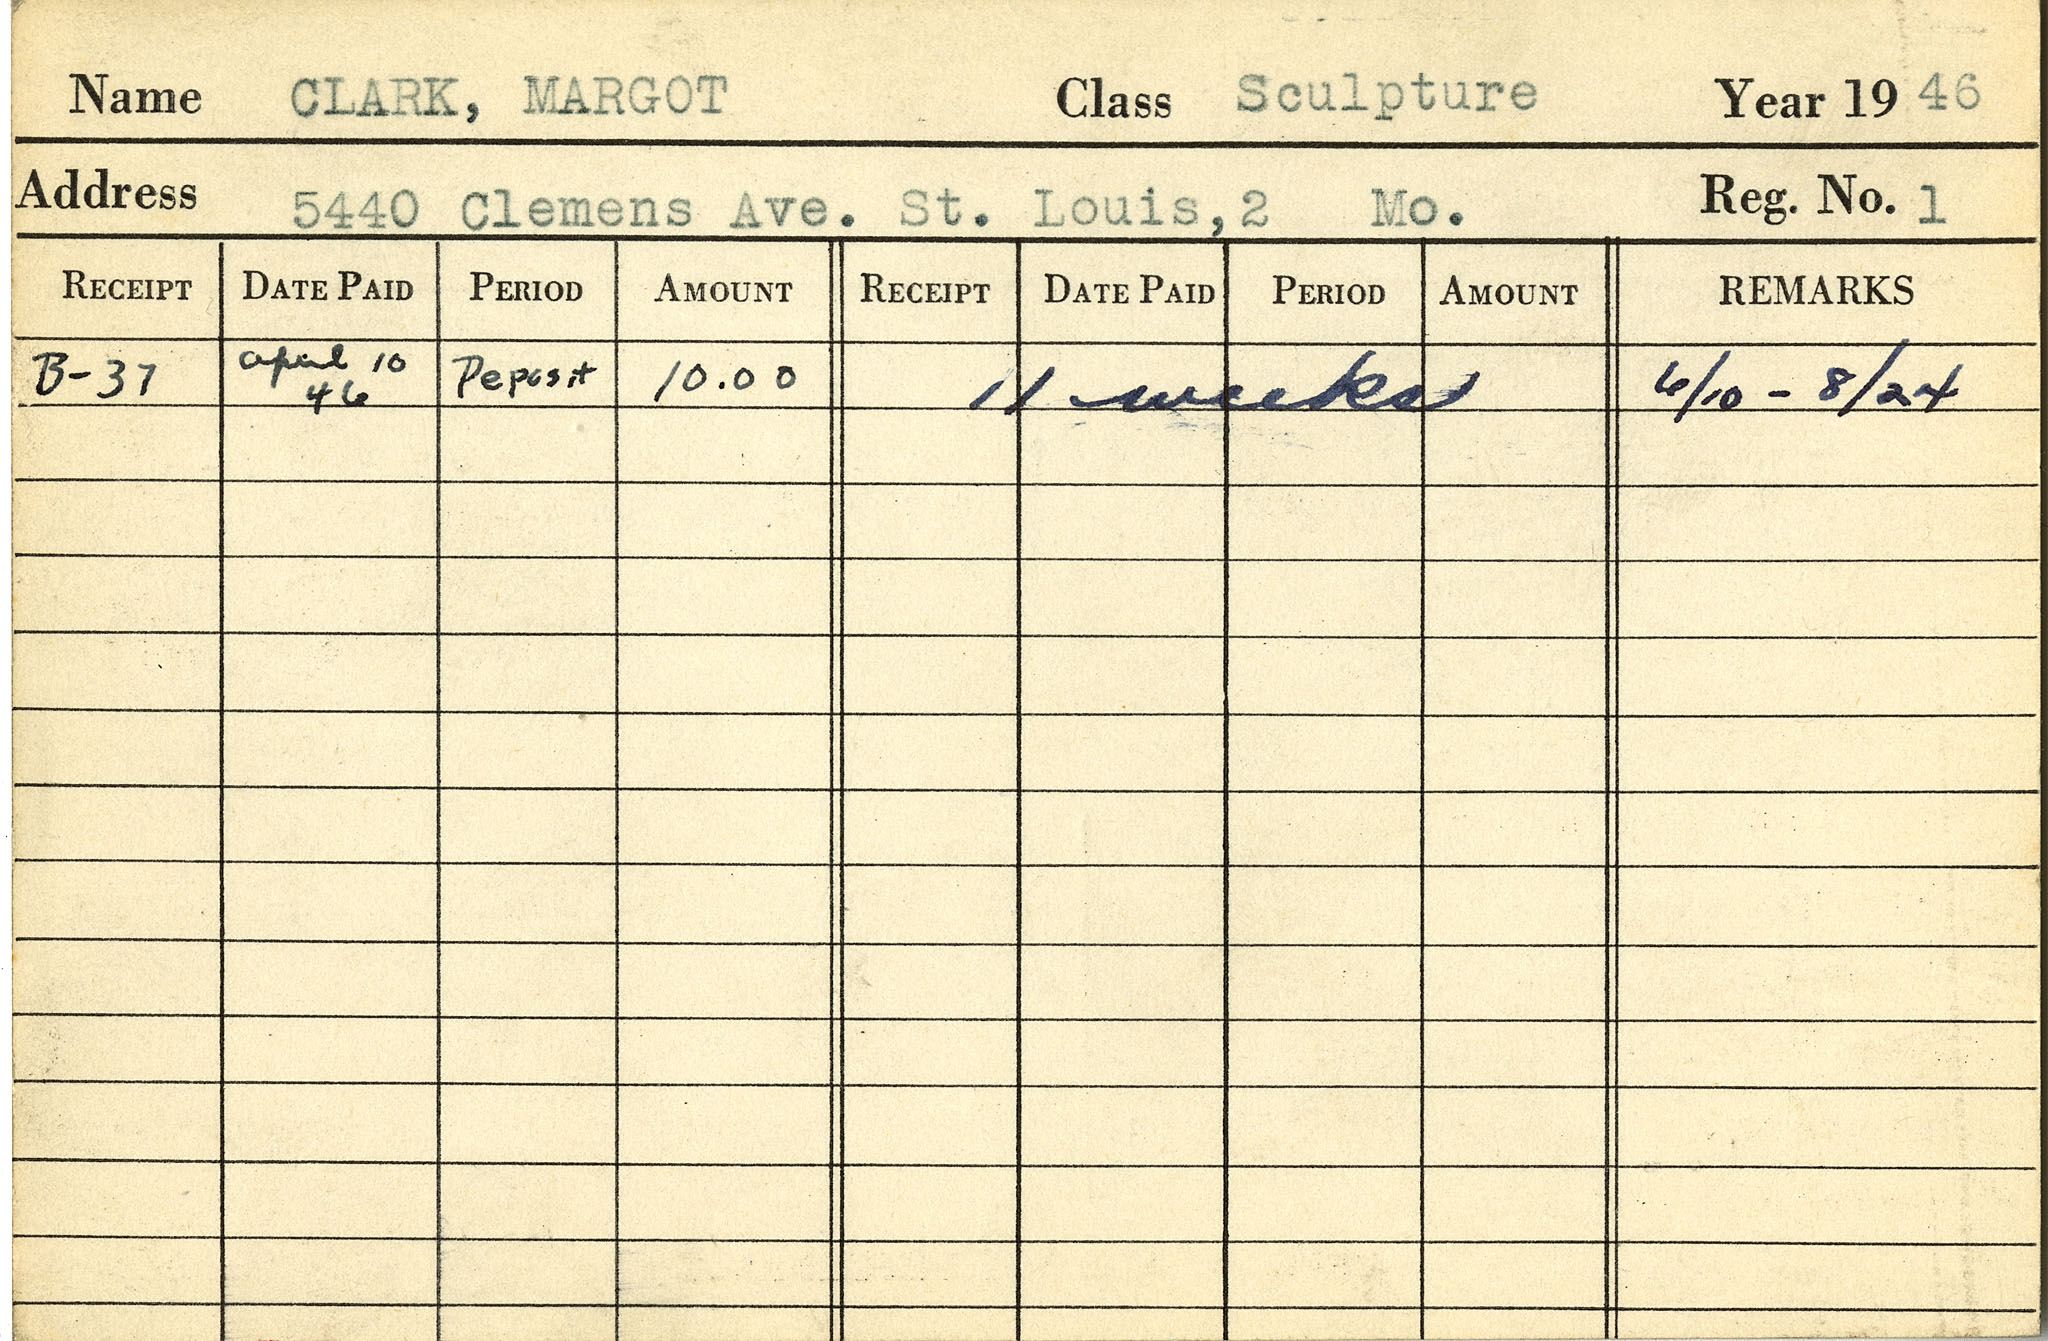 Name CLARK, MARGOT Class Sculpture Year 19 46
Address 5440 Clemens Ave. St. Louis,2 Mo. Reg. No. 1
RECEIPT DATE PAID PERIOD AMOUNT RECEIPT DATE PAID PERIOD AMOUNT REMARKS
B-37 april 10 46 Deposit 10.00 11 weeks 6/10 - 8/24